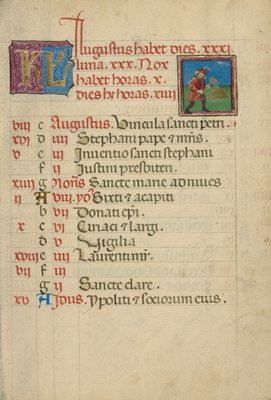 KL Augustus habet dies. xxxi
luna. xxx. Nox
habet horas. x.
dies hñ horas. xiiii
viii c Augustus. Vincula sancti petri.
xvi d iiii Stephani pape & mrĩs.
v e iii Inventio sancti stephani
f ii Justini presbiteri.
xiii g Nonis Sancte marie ad nives
ii A viii. yd9 Sixti & agapiti
b vii Donati epĩ.
x c vi Ciriaci & largi.
d v Vigilia
xviii e iiii Laurentii mr̃.
vii f iii
g ii Sancte clare.
xv A Idus. Ypoliti & sociorum eius.